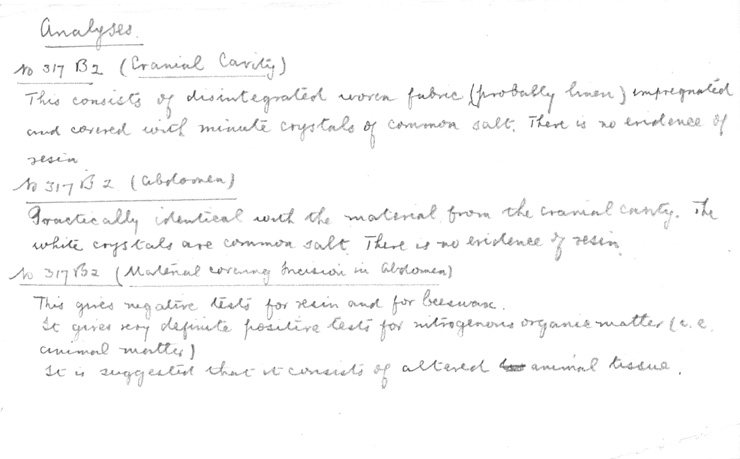 Analyses.
No 317 B2 (Cranial Cavity)
This consists of disintegrated woven fabric (probably linen) impregnated
and covered with minute crystals of common salt. There is no evidence of
resin
No 317 B 2 (Abdomen)
Practically identical with the material from the cranial cavity. The
white crystals are common salt. There is no evidence of resin.
No 317 B2 (Material covering Incision in Abdomen)
This gives negative tests for resin and for beeswax.
It gives very definite positive tests for nitrogenous organic matter (i.e.
animal matter)
It is suggested that it consists of altered animal tissue.